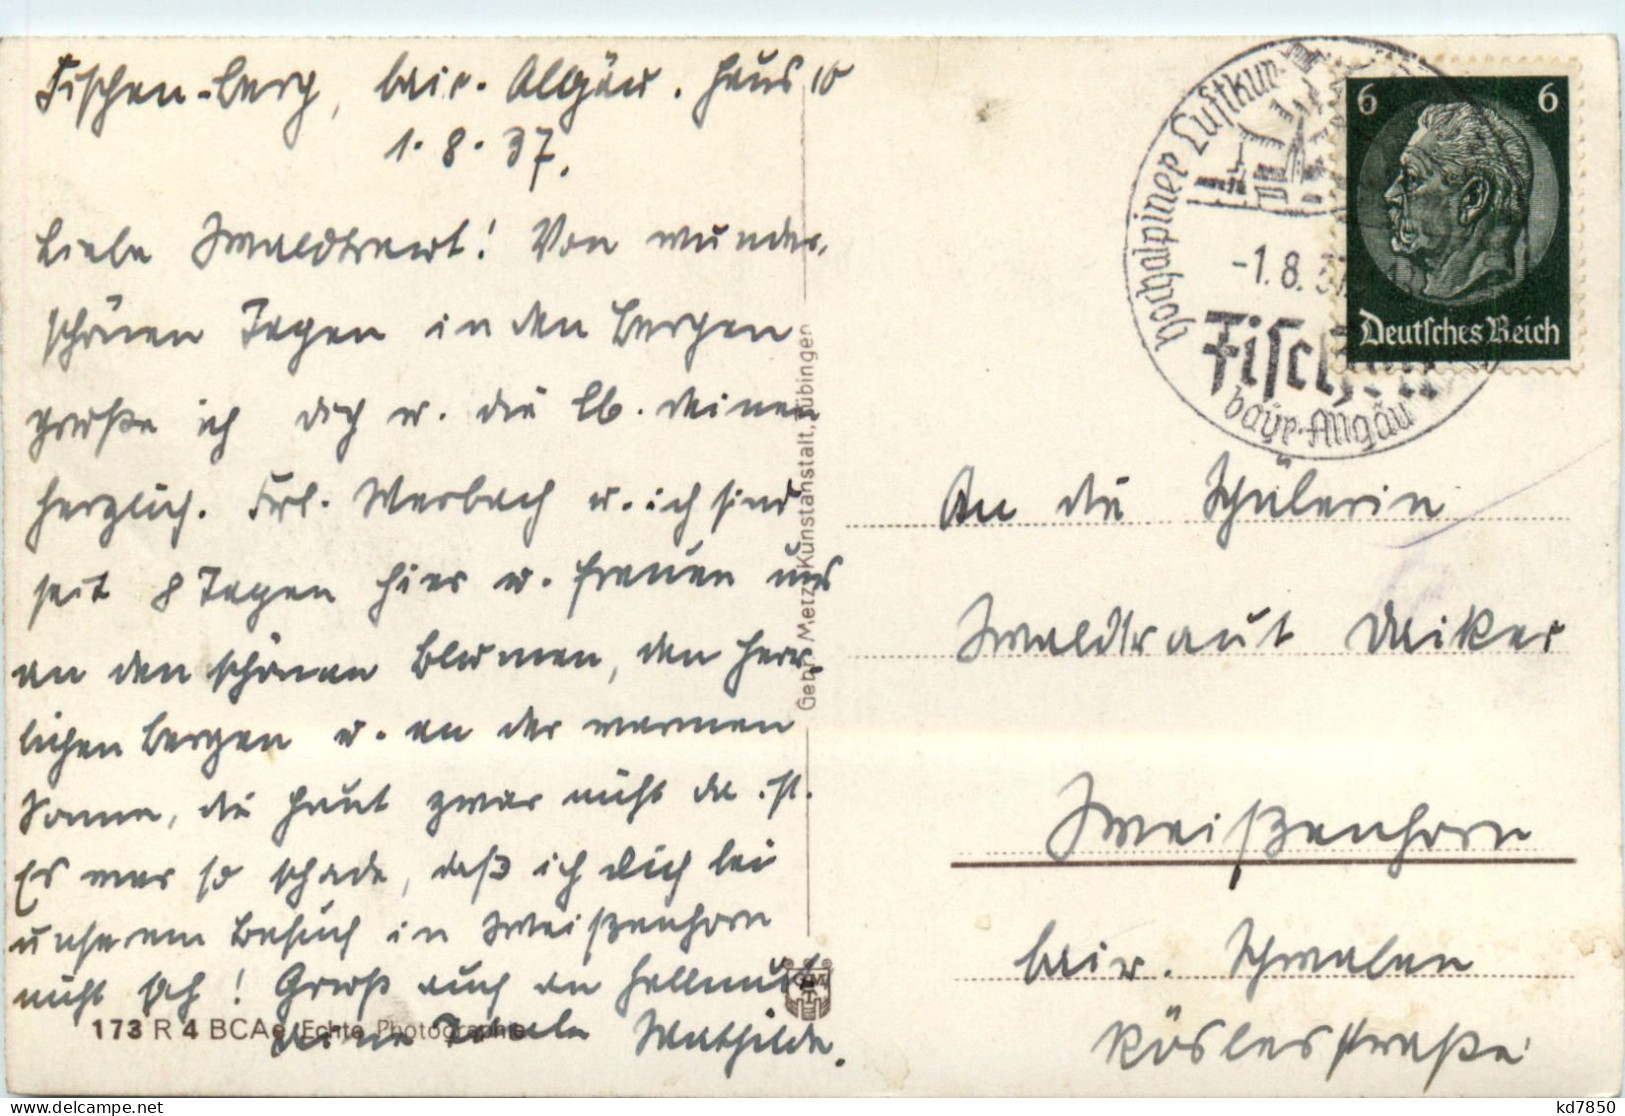 Fischen-Berg, bair. Algäu. Haus 10
1.8.37.
Liebe Waldtraut! Von wunder-
schönen Tagen in den Bergen
grüße ich dich u. die lb. deinen
herzlich. Frl. Werbach u. ich sind
seit 8 Tagen hier u. freuen uns
an den schönen Blumen, den herr-
lichen Bergen u. an der warmen
Sonne, die heut zwar nicht da ist.
Es war so schade, daß ich dich bei
unserem Besuch in Weißenhorn
nicht sah! Gruß auch an Hellmut
deine Mathilde.
173 R 4 BCAe Echte Photographie
Gebr. Metz, Kunstanstalt, Tübingen
Hochalpiner Luftkur
-1.8.37
Fischen
bayr. Allgäu
6 6
Deutsches Reich
An die Schülerin
Waldtraut Deiker
Weißenhorn
bair. Schwaben
Röslerstraße
kd7850